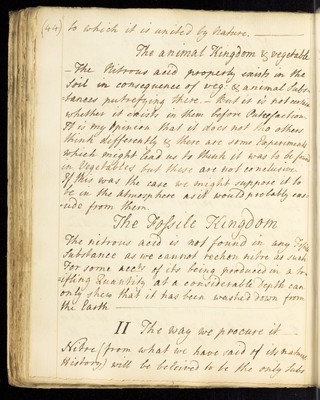 (44) to which it is united by Nature.
The animal Kingdom & vegetable
- The Nitrous acid properly exists in the
Soil in consequence of veg: & animal Subs-
tances putrefying there. - But it is not certain
whether it exists in them before Putrefaction
It is my opinion that it does not tho others
think differently & there are some Experiments
which might lead us to think it was to be found
in Vegetables but these are not conclusive.
If this was the case we might suppose it to
be in the atmosphere as it would probably
-ude from them
The Fossile Kingdom
The nitrous acid is not found in any Fossile
Substance as we cannot reckon nitre as such
For some accts of its being produced in a tr-
ifling Quantity at a considerable Depth can
only shew that it has been washed down from
the Earth
II The way we procure it
Nitre (from what we have said of its natural
History) will be beleived to be the only Subs